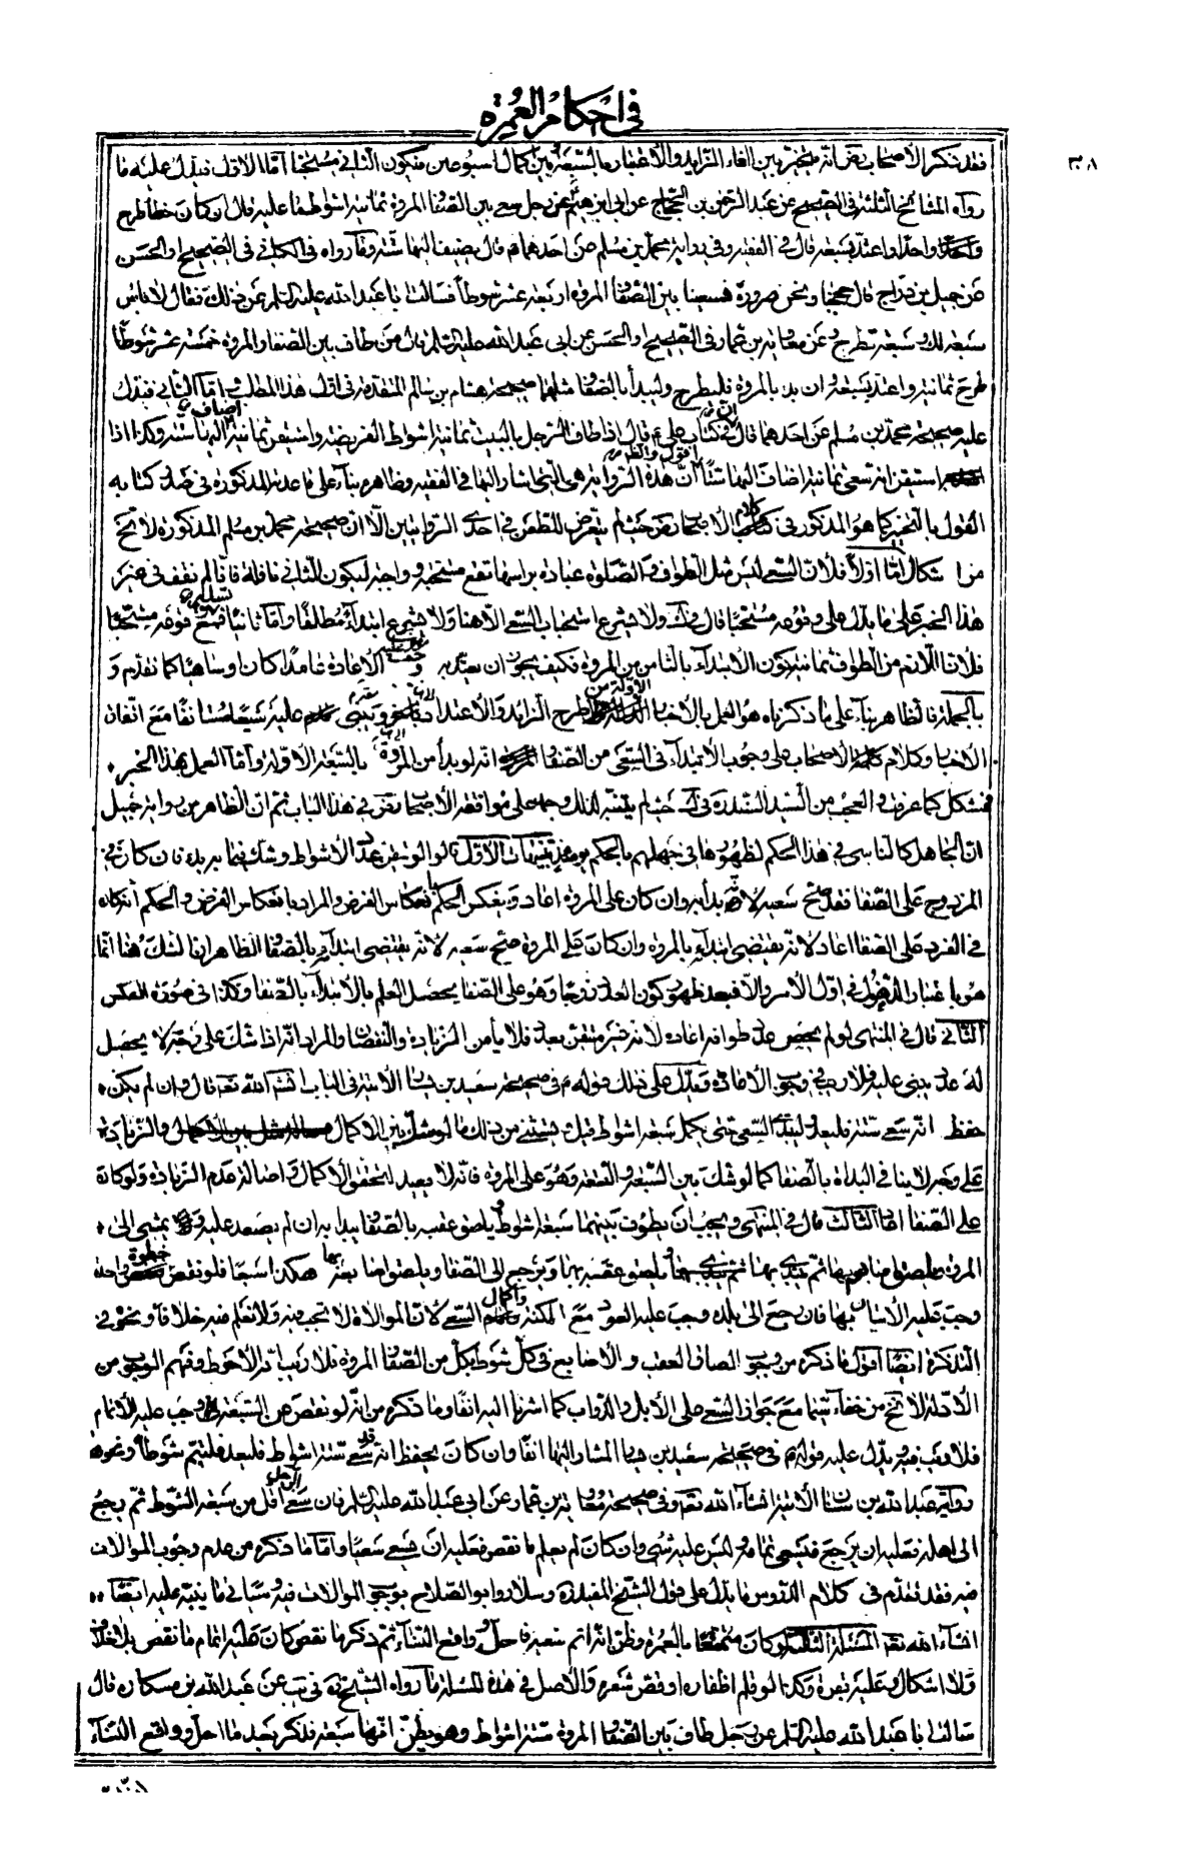 في احكام العمرة
٣٠٨
فقد ذكر الاصحاب رض انه يتخير بين الغاء الزايد والاعتداد بالسبعة وبين اكمال اسبوعين فيكون الثاني مستحبا اما الاول فيدل عليه ما
رواه المشائخ الثلثة في الصحيح عن عبد الرحمن بن الحجاج عن ابي ابرهيم في رجل سعى بين الصفا والمروة ثمانية اشواط ما عليه قال ان كان خطأ طرح
واحدا واعتد بسبعة قال في الفقيه وفي رواية محمد بن مسلم عن احدهما قال يضيف اليها ستة وما رواه في الكافي في الصحيح او الحسن
عن جميل بن دراج قال حججنا ونحن صرورة فسعينا بين الصفا والمروة اربعة عشر شوطا فسالت ابا عبد الله عليه السلم عن ذلك فقال لا باس
سبعة لك وسبعة تطرح وعن معوية بن عمار في الصحيح او الحسن عن ابي عبد الله عليه السلم قال من طاف بين الصفا والمروة خمسة عشر شوطا
طرح ثمانية واعتد بسبعة وان بدأ بالمروة فليطرح وليبدأ بالصفا ومثلهما صحيحة هشام بن سالم المتقدمة في اول هذا المطلب واما الثاني فيدل
عليه صحيحة محمد بن مسلم عن احدهما قال ان في كتاب علي ع قال اذا طاف الرجل بالبيت ثمانية اشواط الفريضة واستيقن ثمانية اضاف اليها ستة وكذا اذا
استيقن انه سعى ثمانية اضاف اليها ستا اقول والظ ان هذه الرواية هي التي اشار اليها في الفقيه وظاهره بناء على قاعدته المذكورة في صدر كتابه
القول بالتخيير كما هو المذكور في كلام الاصحاب رض حيث لم يتعرض للطعن في احدى الروايتين الا ان صحيحة محمد بن مسلم المذكورة لا تخ
من اشكال اما اولا فلان السعي ليس مثل الطواف والصلوة عبادة براسها تقع مستحبة وواجبة ليكون الثاني نافلة فانا لم نقف في غير
هذا الخبر على ما يدل على وقوعه مستحبا قال في ك ولا يشرع استحباب السعي الا هنا ولا يشرع ابتداء مطلقا واما ثانيا فمع تسليم وقوعه مستحبا
فلان اللازم من الطواف ثمانية كون الابتداء بالثامن من المروة فكيف يجوز ان يعتد به وجب عليه الاعادة عامدا كان او ساهيا كما تقدم و
بالجملة فالظاهر بناء على ما ذكرناه هو العمل بالاخبار الاولة من طرح الزايد والاعتداد عليه شيئا مستانفا مع اتفاق
الاخبار وكلام الاصحاب على وجوب الابتداء في السعي من الصفا انه لو بدأ من المروة بالسبعة الاولة واما العمل بهذا الخبر
فمشكل كما عرفت والعجب من السيد السند ره في ك حيث لم يتنبه لذلك وجمد على موافقة الاصحاب رض في هذا الباب ثم ان الظاهر من رواية جميل
ان الجاهل كالناسي في هذا الحكم لظهورها في جهلهم بالحكم يومئذ تنبيهات الاول لو تيقن عدد الاشواط وشك فيما بدء به فان كان في
المزدوج على الصفا فقد صح سعيه لانه بدأ به وان كان على المروة اعاد وينعكس الحكم بانعكاس الفرض والمراد بانعكاس الفرض والحكم انه كان
في الفرد على الصفا اعاد لانه يقتضي ابتداءه بالمروة وان كان على المروة صح سعيه لانه يقتضي ابتداءه بالصفا والظاهر ان الشك هنا انما
هو باعتبار الدخول في اول الامر والا فبعد ظهور كون العدد زوجا وهو على الصفا يحصل العلم بالابتداء بالصفا وكذا في صورة العكس
الثاني قال في المنتهى لو لم يحص عدد طوافه اعاده لانه غير متيقن بعدد فلا يأمن الزيادة والنقصان والمراد انه اذا شك على وجه لا يحصل
له عدد يبني عليه فلا ريب في وجوب الاعادة ويدل على ذلك قوله ع في صحيحة سعيد بن يسار الاتية في الباب انشاء الله تعه قال وان لم يكن
حفظ انه سعى ستة فليعد وليبتدأ السعي حتى يكمل سبعة اشواط قيل ويستثنى من ذلك ما لو شك بين الاكمال والزيادة
على وجه لا ينافي البداة بالصفا كما لو شك بين السبعة والتسعة وهو على المروة فانه لا يعيد لتحقق الاكمال واصالة عدم الزيادة ولو كان
على الصفا اعاد الثالث قال في المنتهى ويجب ان يطوف بينهما سبعة اشواط يلصق عقبه بالصفا ويبدا به ان لم يصعد عليه ويمشي الى
المروة ويلصق اصابعه بها ثم يبتدي بها ويلصق عقبه بها ويرجع الى الصفا ويلصق اصابعه بها هكذا سبعا فلو نقص خطوة واحدة
وجب عليه الاتيان بها فان رجع الى بلده وجب عليه العود مع المكنة واكمال السعي لان الموالاة لا تجب فيه ولا نعلم فيه خلافا ونحوه في
التذكرة ايضا اقول ما ذكره من وجوب الصاق العقب والاصابع في كل شوط بكل من الصفا والمروة فلا ريب انه الاحوط وفهم الوجوب من
الادلة لا يخ من خفاء سيما مع جواز السعي على الابل والدواب كما اشرنا اليه انفا وما ذكره من انه لو نقص من السبعة وجب عليه الاتمام
فلا ريب فيه ويدل عليه قوله ع في صحيحة سعيد بن يسار المشار اليها انفا وان كان يحفظ انه قد سعى ستة اشواط فليعد فليتم شوطا ونحوها
رواية عبد الله بن سنان الاتية انشاء الله تعه وفي صحيحة معوية بن عمار عن ابي عبد الله عليه السلم فان سعى الرجل اقل من سبعة اشواط ثم رجع
الى اهله فعليه ان يرجع فيسعى تمامه وليس عليه شيء وان كان لم يعلم ما نقص فعليه ان يسعى سبعا واما ما ذكره من عدم وجوب الموالات
فيه فقد تقدم في كلام الدروس ما يدل على قول الشيخ المفيد ره وسلار وابو الصلاح بوجوب الموالات فيه وسياتي ما ينبه عليه ايضا
انشاء الله تعه المسئلة الثالثة لو كان متمتعا بالعمرة وظن انه اتم سعيه فاحل وواقع النساء ثم ذكر ما نقص كان عليه اتمام ما نقص بلا خلاف
ولا اشكال وعليه بقرة وكذا لو قلم اظفاره او قص شعره والاصل في هذه المسئلة ما رواه الشيخ ره في يب عن عبد الله بن مسكان قال
سالت ابا عبد الله عليه السلم عن رجل طاف بين الصفا والمروة ستة اشواط وهو يظن انها سبعة فذكر بعد ما احل وواقع النساء